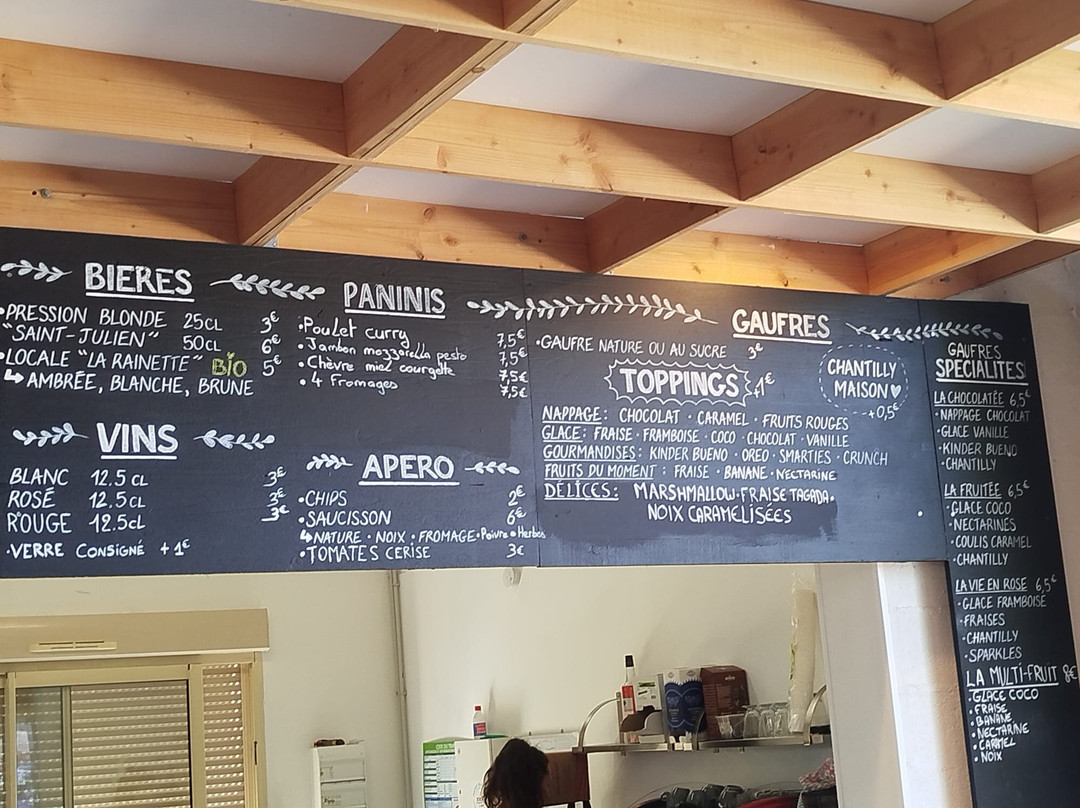 BIERES
•PRESSION BLONDE 25CL 3€
"SAINT-JULIEN" 50CL 6€
•LOCALE "LA RAINETTE" BIO 5€
↳AMBRÉE, BLANCHE, BRUNE
VINS
BLANC 12.5 CL 3€
ROSÉ 12.5CL 3€
ROUGE 12.5CL 3€
•VERRE CONSIGNÉ +1€
PANINIS
•Poulet curry 7,5€
•Jambon mozzarella pesto 7,5€
•Chèvre miel courgette 7,5€
•4 Fromages 7,5€
APERO
•CHIPS 2€
•SAUCISSON 6€
↳NATURE • NOIX • FROMAGE•Poivre•Herbes
•TOMATES CERISE 3€
GAUFRES
•GAUFRE NATURE OU AU SUCRE 3€
TOPPINGS +1€
CHANTILLY
MAISON♥
+0,5€
NAPPAGE: CHOCOLAT • CARAMEL • FRUITS ROUGES
GLACE: FRAISE • FRAMBOISE • COCO • CHOCOLAT • VANILLE
GOURMANDISES: KINDER BUENO • OREO • SMARTIES • CRUNCH
FRUITS DU MOMENT: FRAISE • BANANE • NECTARINE
DÉLICES: MARSHMALLOW•FRAISE TAGADA•
NOIX CARAMÉLISÉES
GAUFRES
SPECIALITES
LA CHOCOLATÉE 6,5€
•NAPPAGE CHOCOLAT
•GLACE VANILLE
•KINDER BUENO
•CHANTILLY
LA FRUITÉE 6,5€
•GLACE COCO
•NECTARINES
•COULIS CARAMEL
•CHANTILLY
LA VIE EN ROSE 6,5€
•GLACE FRAMBOISE
•FRAISES
•CHANTILLY
•SPARKLES
LA MULTI-FRUIT 8€
•GLACE COCO
•FRAISE
•BANANE
•NECTARINE
•CARAMEL
•NOIX